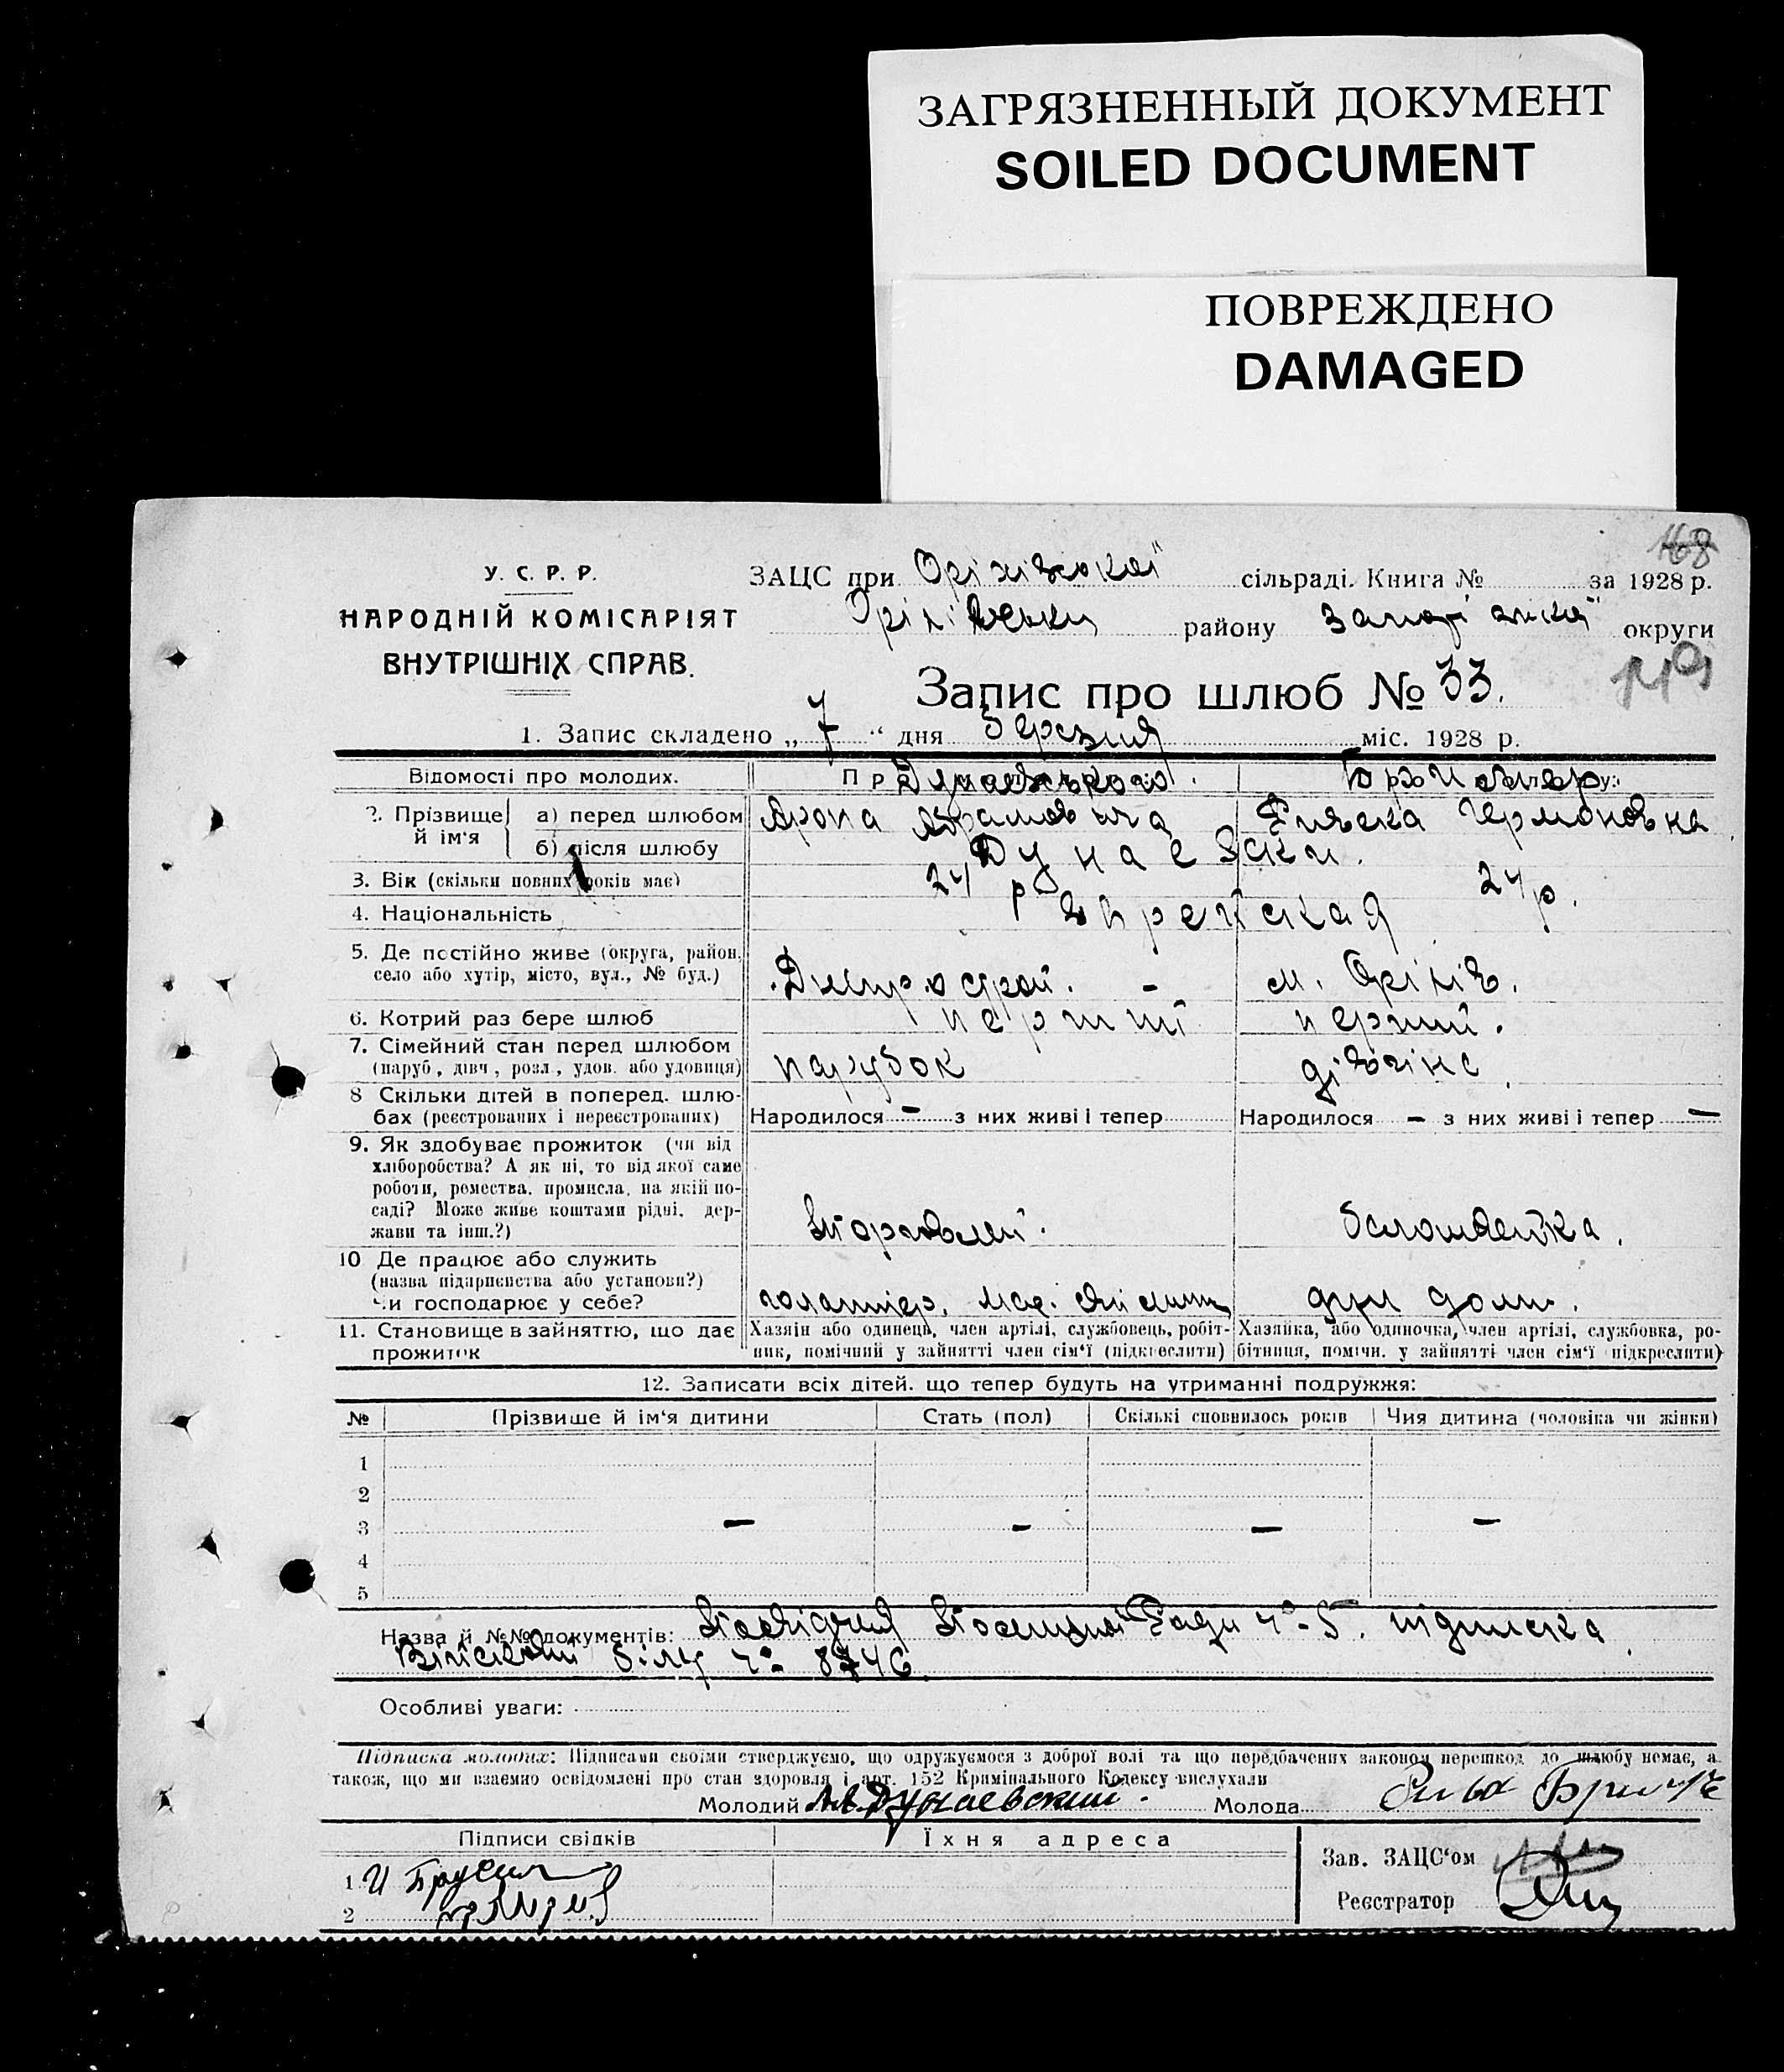 ЗАГРЯЗНЕННЫЙ ДОКУМЕНТ
SOILED DOCUMENT
ПОВРЕЖДЕНО
DAMAGED
168
У. С. Р. Р.
НАРОДНІЙ КОМІСАРІЯТ
ВНУТРІШНІХ СПРАВ.
ЗАЦС при Оріхівської сільраді. Книга № за 1928 р.
району округи
Запис про шлюб № 33.
1. Запис складено „ 7 “ дня березня міс. 1928 р.
Відомості про молодих.
2. Прізвище й ім'я
а) перед шлюбом Арона Абрамовича Ривека Germановна
б) після шлюбу Дунаевски.
3. Вік (скільки повних років має) 24 р 24 р.
4. Національність Еврейская
5. Де постійно живе (округа, район, село або хутір, місто, вул., № буд.) Днепрострой. - м. Оріхів.
6. Котрий раз бере шлюб перший перший.
7. Сімейний стан перед шлюбом
(паруб., дівч., розл., удов. або удовиця) парубок дівчина
8 Скільки дітей в поперед. шлю-
бах (реєстрованих і нереєстрованих) Народилося - з них живі і тепер Народилося - з них живі і тепер -
9. Як здобуває прожиток (чи від
хліборобства? А як ні, то від якої саме
роботи, ремества, промисла, на якій по-
саді? Може живе коштами рідні, дер-
жави та інш.?) белошвейка.
10 Де працює або служить
(назва підприємства або установи?)
Чи господарює у себе? при доми.
11. Становище в зайняттю, що дає
прожиток
Хазяїн або одинець, член артілі, службовець, робіт-
ник, помічний у зайнятті член сім'ї (підкреслити)
Хазяйка, або одиночка, член артілі, службовка, ро-
бітниця, помічн. у зайнятті член сім'ї (підкреслити)
12. Записати всіх дітей, що тепер будуть на утриманні подружжя:
№ Прізвище й ім'я дитини Стать (пол) Скількі сповнилось років Чия дитина (чоловіка чи жінки)
1
2
3 - - - -
4
5
Назва й №№ документів: Ради № 5. підписка
№ 8746
Особливі уваги:
Підписка молодих: Підписами своїми стверджуємо, що одружуємося з доброї волі та що передбачених законом перешкод до шлюбу немає, а
також, що ми взаємно освідомлені про стан здоровля і арт. 152 Кримінального Кодексу вислухали
Молодий А.А.Дунаевский. Молода
Підписи свідків Їхня адреса
1
2
Зав. ЗАЦС'ом
Реєстратор